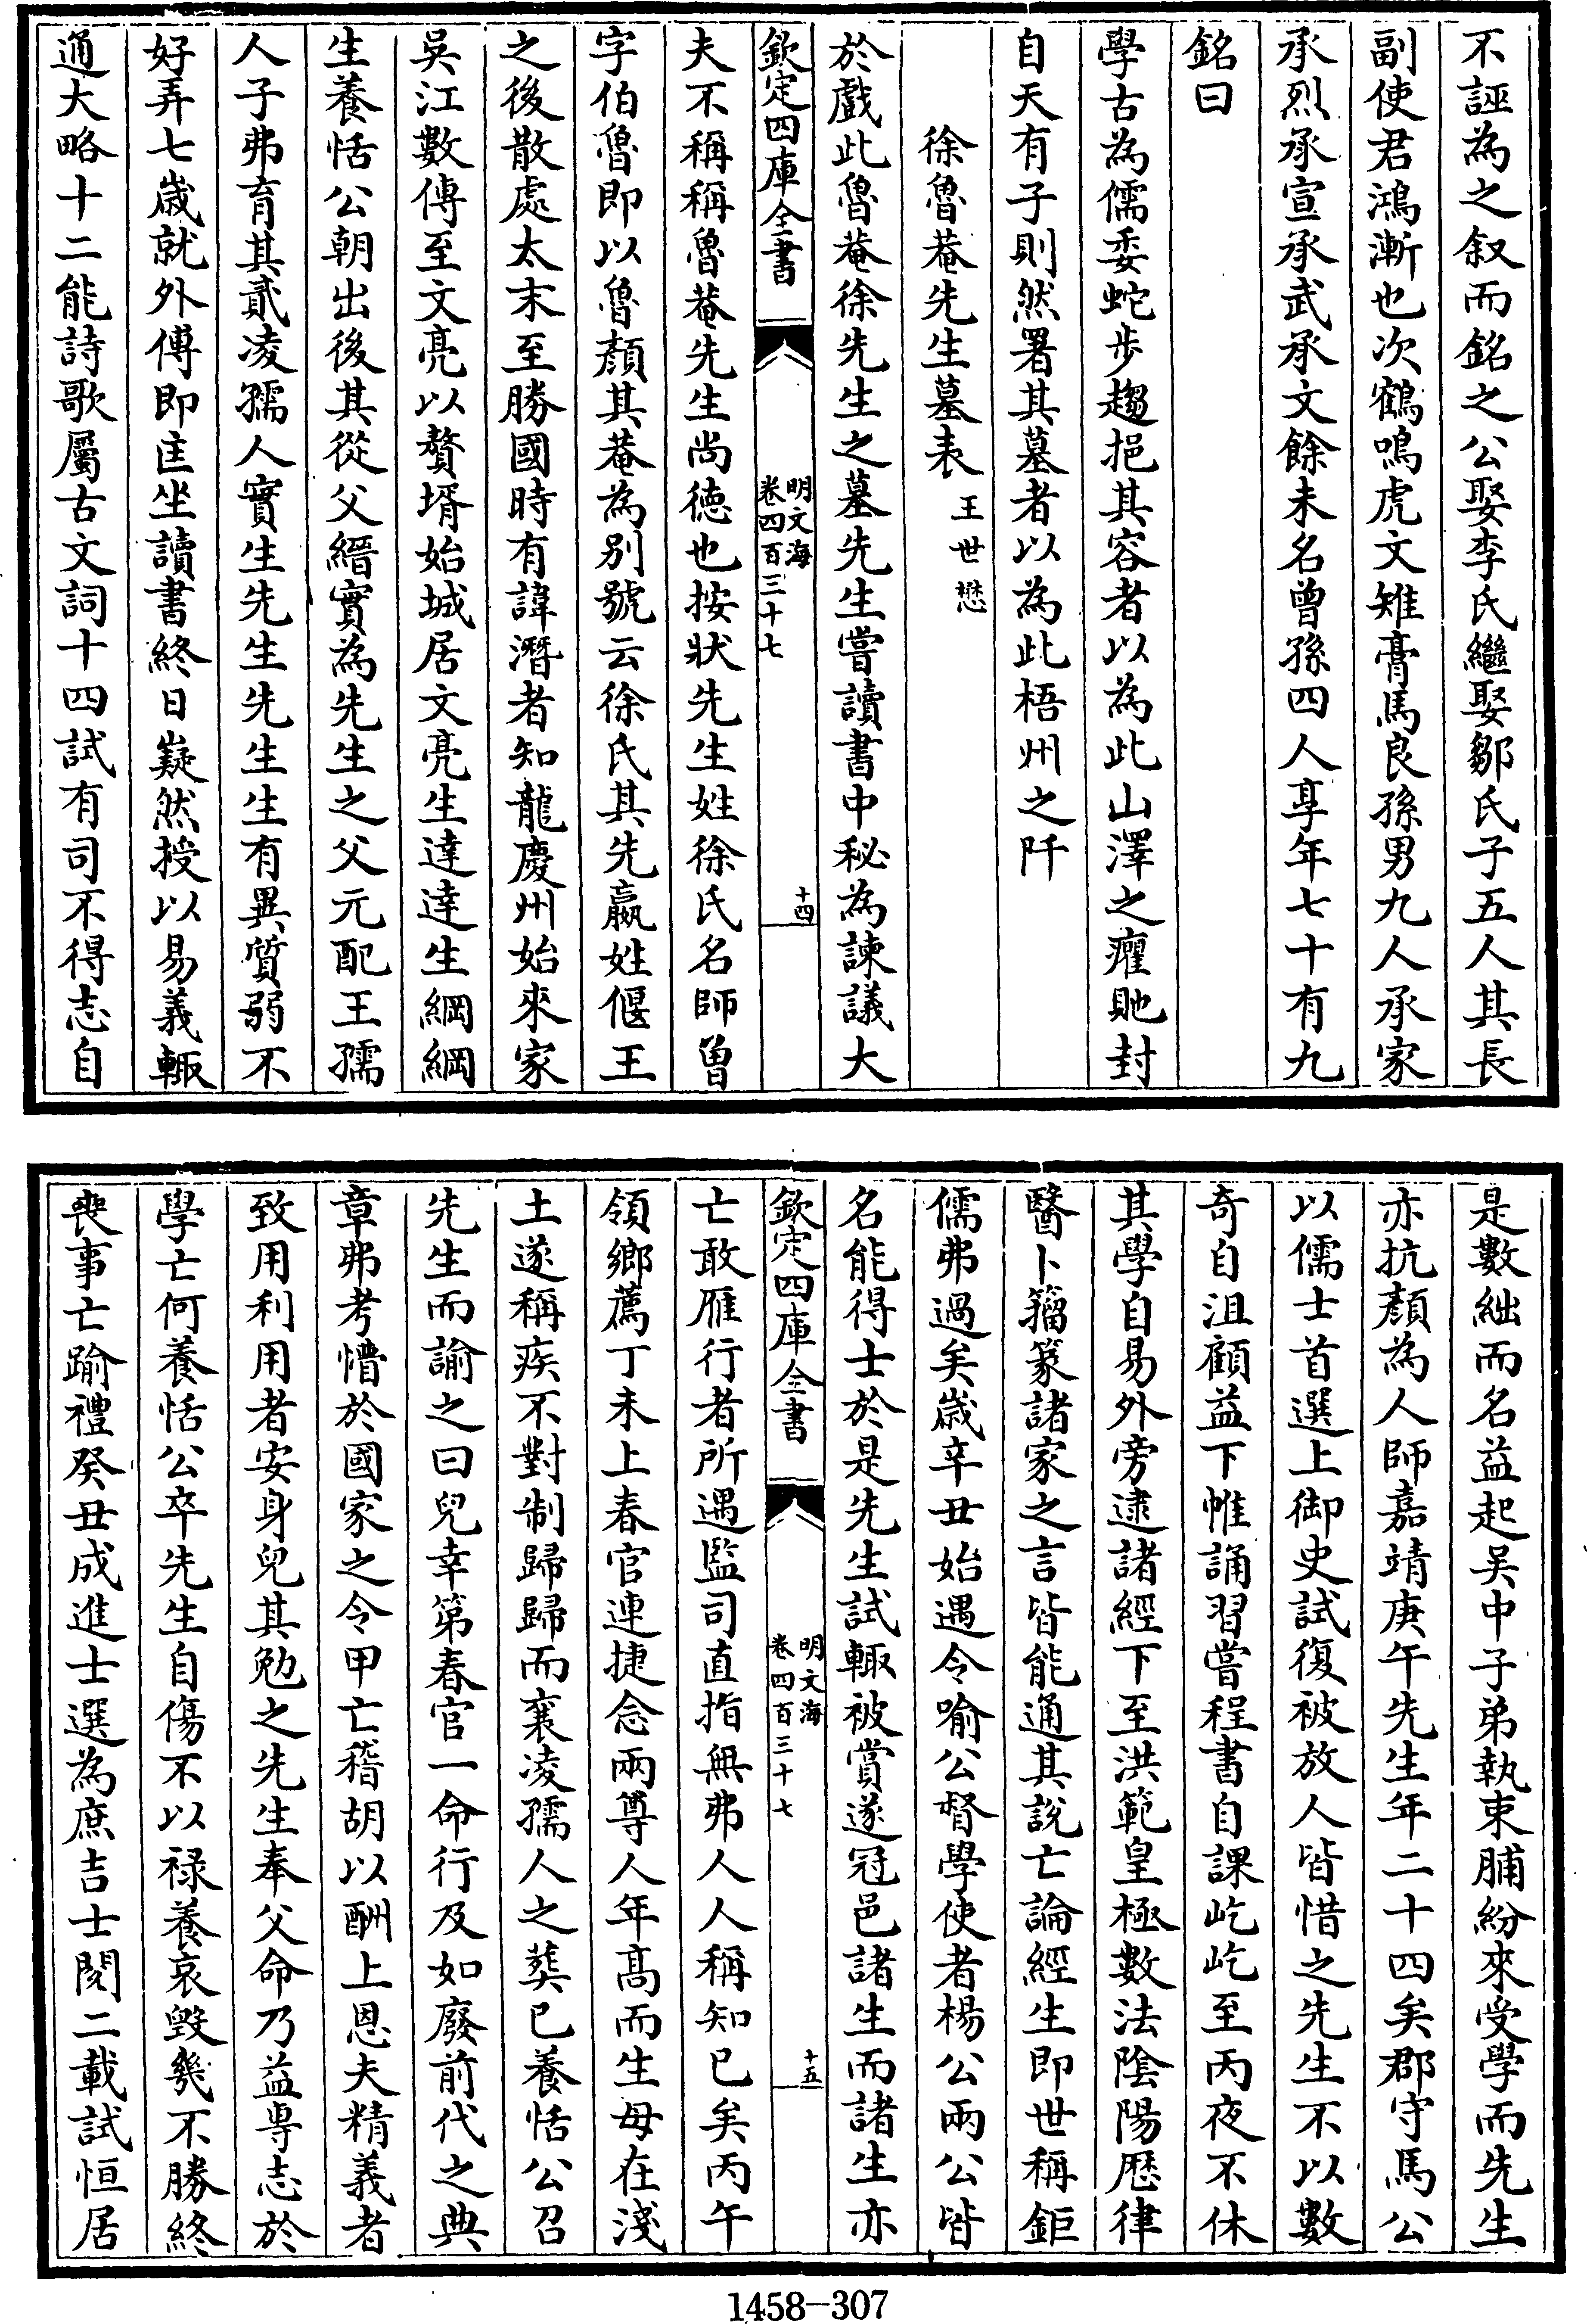 不誣為之叙而銘之公娶李氏繼娶鄒氏子五人其長
副使君鴻漸也次鶴鳴虎文雉膏馬良孫男九人承家
承烈承宣承武承文餘未名曾孫四人享年七十有九
銘曰
學古為儒委蛇步趨挹其容者以為此山澤之癯貤封
自天有子則然署其墓者以為此梧州之阡
徐魯菴先生墓表 王世懋
於戲此魯菴徐先生之墓先生嘗讀書中秘為諫議大
欽定四庫全書 明文海 卷四百三十七 十四
夫不稱稱魯菴先生尚德也按狀先生姓徐氏名師曾
字伯魯即以魯顏其菴為別號云徐氏其先嬴姓偃王
之後散處太末至勝國時有諱潛者知龍慶州始來家
吳江數傳至文亮以贅壻始城居文亮生達達生綱綱
生養恬公朝出後其從父縉實為先生之父元配王孺
人子弗育其貳凌孺人實生先生先生生有異質弱不
好弄七歲就外傅即匡坐讀書終日嶷然授以易義輙
通大略十二能詩歌屬古文詞十四試有司不得志自
是數絀而名益起吳中子弟執束脯紛來受學而先生
亦抗顏為人師嘉靖庚午先生年二十四矣郡守馬公
以儒士首選上御史試復被放人皆惜之先生不以數
奇自沮顧益下帷誦習嘗程書自課屹屹至丙夜不休
其學自易外旁逮諸經下至洪範皇極數法陰陽歴律
醫卜籀篆諸家之言皆能通其說亡論經生即世稱鉅
儒弗過矣歲辛丑始遇令喻公督學使者楊公兩公皆
名能得士於是先生試輙被賞遂冠邑諸生而諸生亦
欽定四庫全書 明文海 卷四百三十七 十五
亡敢雁行者所遇監司直指無弗人人稱知已矣丙午
領鄉薦丁未上春官連捷念兩尊人年高而生母在淺
土遂稱疾不對制歸歸而襄凌孺人之葬已養恬公召
先生而諭之曰兒幸第春官一命行及如廢前代之典
章弗考懵於國家之令甲亡稽胡以酬上恩夫精義者
致用利用者安身兒其勉之先生奉父命乃益專志於
學亡何養恬公卒先生自傷不以禄養哀毀幾不勝終
喪事亡踰禮癸丑成進士選為庶吉士閱二載試恒居
1458-307